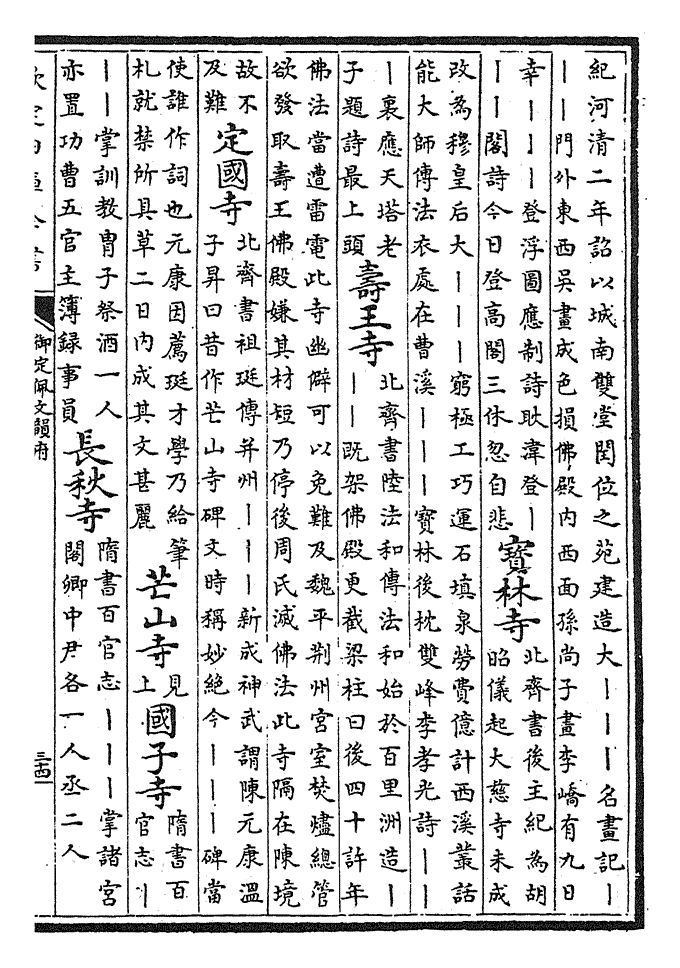 紀河清二年詔以城南雙堂閏位之苑建造大｜｜｜名畫記｜
｜｜門外東西吳畫成色損佛殿內西面孫尚子畫李嶠有九日
幸｜｜｜｜登浮圖應制詩耿湋登｜
｜｜閣詩今日登高閣三休忽自悲
寶林寺
北齊書後主紀為胡
昭儀起大慈寺未成
改為穆皇后大｜｜｜窮極工巧運石填泉勞費億計西溪叢話
能大師傳法衣處在曹溪｜｜｜寶林後枕雙峰李孝光詩｜｜
｜裏應天塔老
子題詩最上頭
壽王寺
北齊書陸法和傳法和始於百里洲造｜
｜｜既架佛殿更截梁柱曰後四十許年
佛法當遭雷電此寺幽僻可以免難及魏平荆州宮室焚燼總管
欲發取壽王佛殿嫌其材短乃停後周氏滅佛法此寺隔在陳境
故不
及難
定國寺
北齊書祖珽傳并州｜｜｜新成神武謂陳元康溫
子昇曰昔作芒山寺碑文時稱妙絕今｜｜｜碑當
使誰作詞也元康因薦珽才學乃給筆
札就禁所具草二日內成其文甚麗
芒山寺
見
上
國子寺
隋書百
官志｜
｜｜掌訓教冑子祭酒一人
亦置功曹五官主簿録事員
長秋寺
隋書百官志｜｜｜掌諸宮
閣卿中尹各一人丞二人
欽定四庫全書
御定佩文韻府
三十四